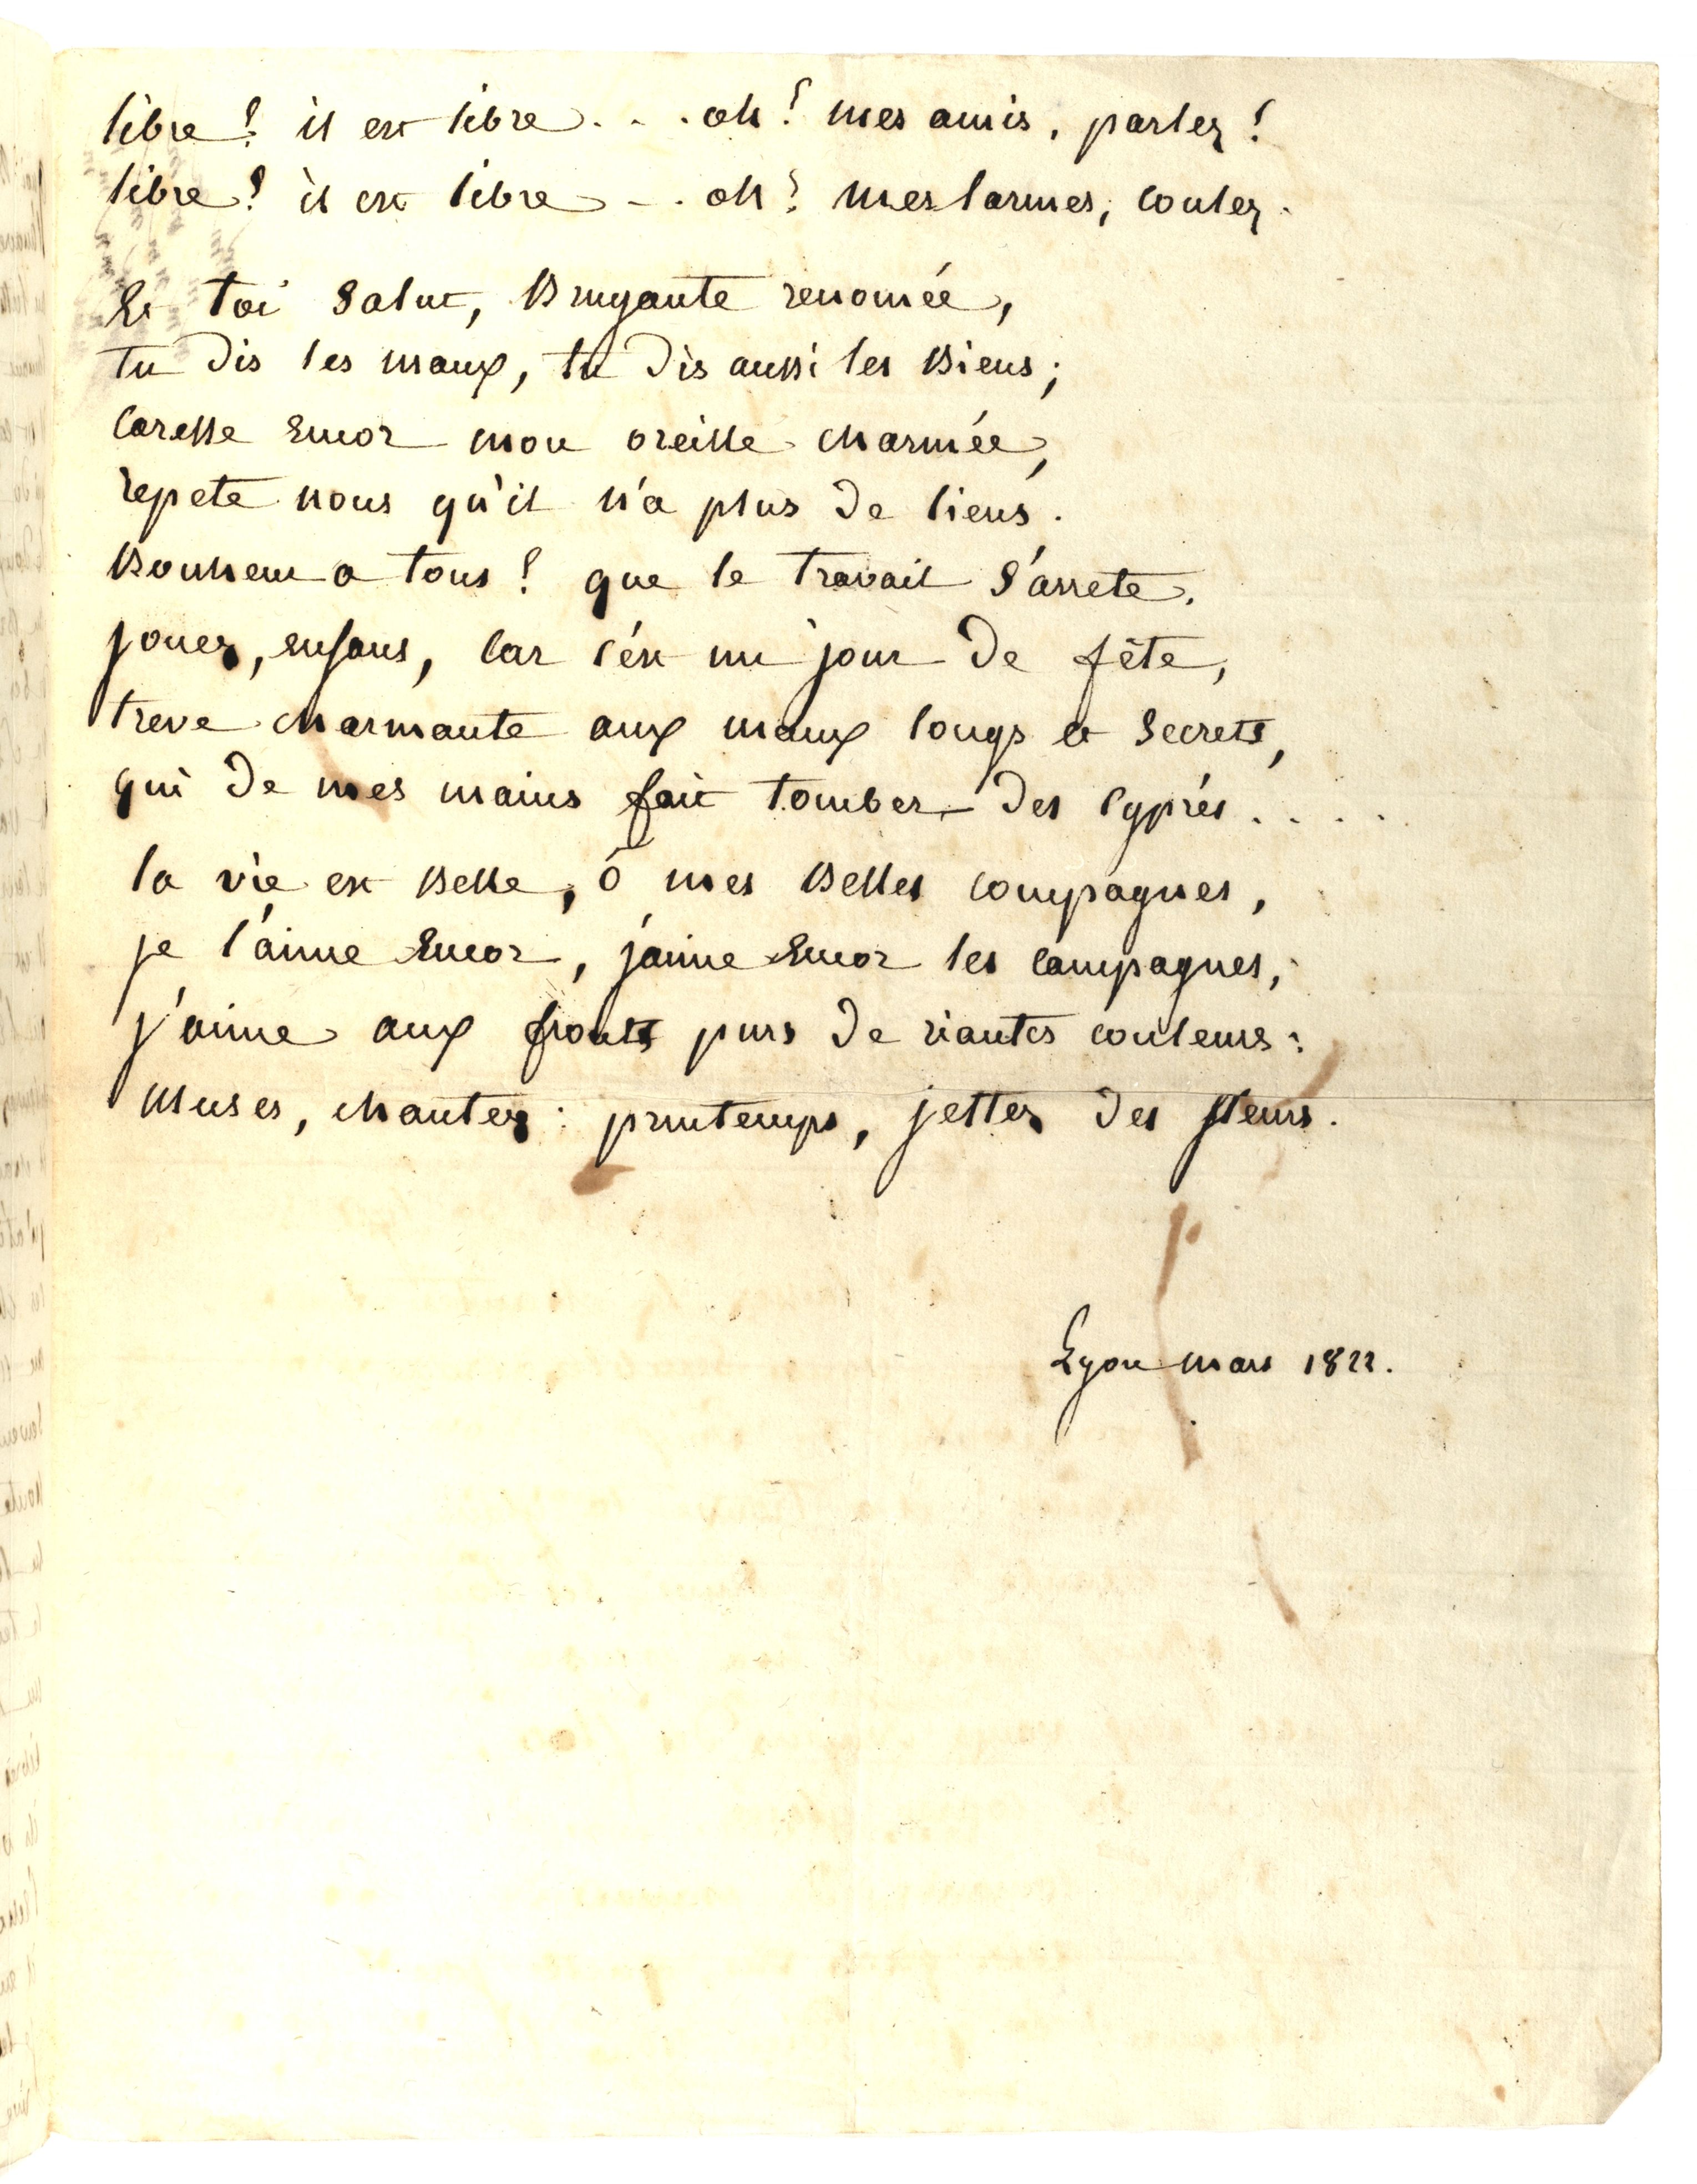 libre! il est libre . . . oh! mes amis, parlez!
libre! il est libre - . . oh! mes larmes, coulez.
Et toi salut, Bruyante renomée,
tu dis les maux, tu dis aussi les Biens;
Caresse encor mon oreille charmée,
repete nous qu'il n'a plus de liens.
Bonheur a tous! que le travail s'arrete.
jouez, enfans, car c'est un jour de fête,
treve charmante aux maux longs et secrets,
qui de mes mains fait tomber des cyprés . . . .
la vie est Belle, ô mes Belles compagnes,
je l'aime encor, j'aime encor les campagnes;
j'aime aux fronts purs de riantes couleurs:
Muses, chantez: printemps, jettez des fleurs.
Lyon mars 1822.